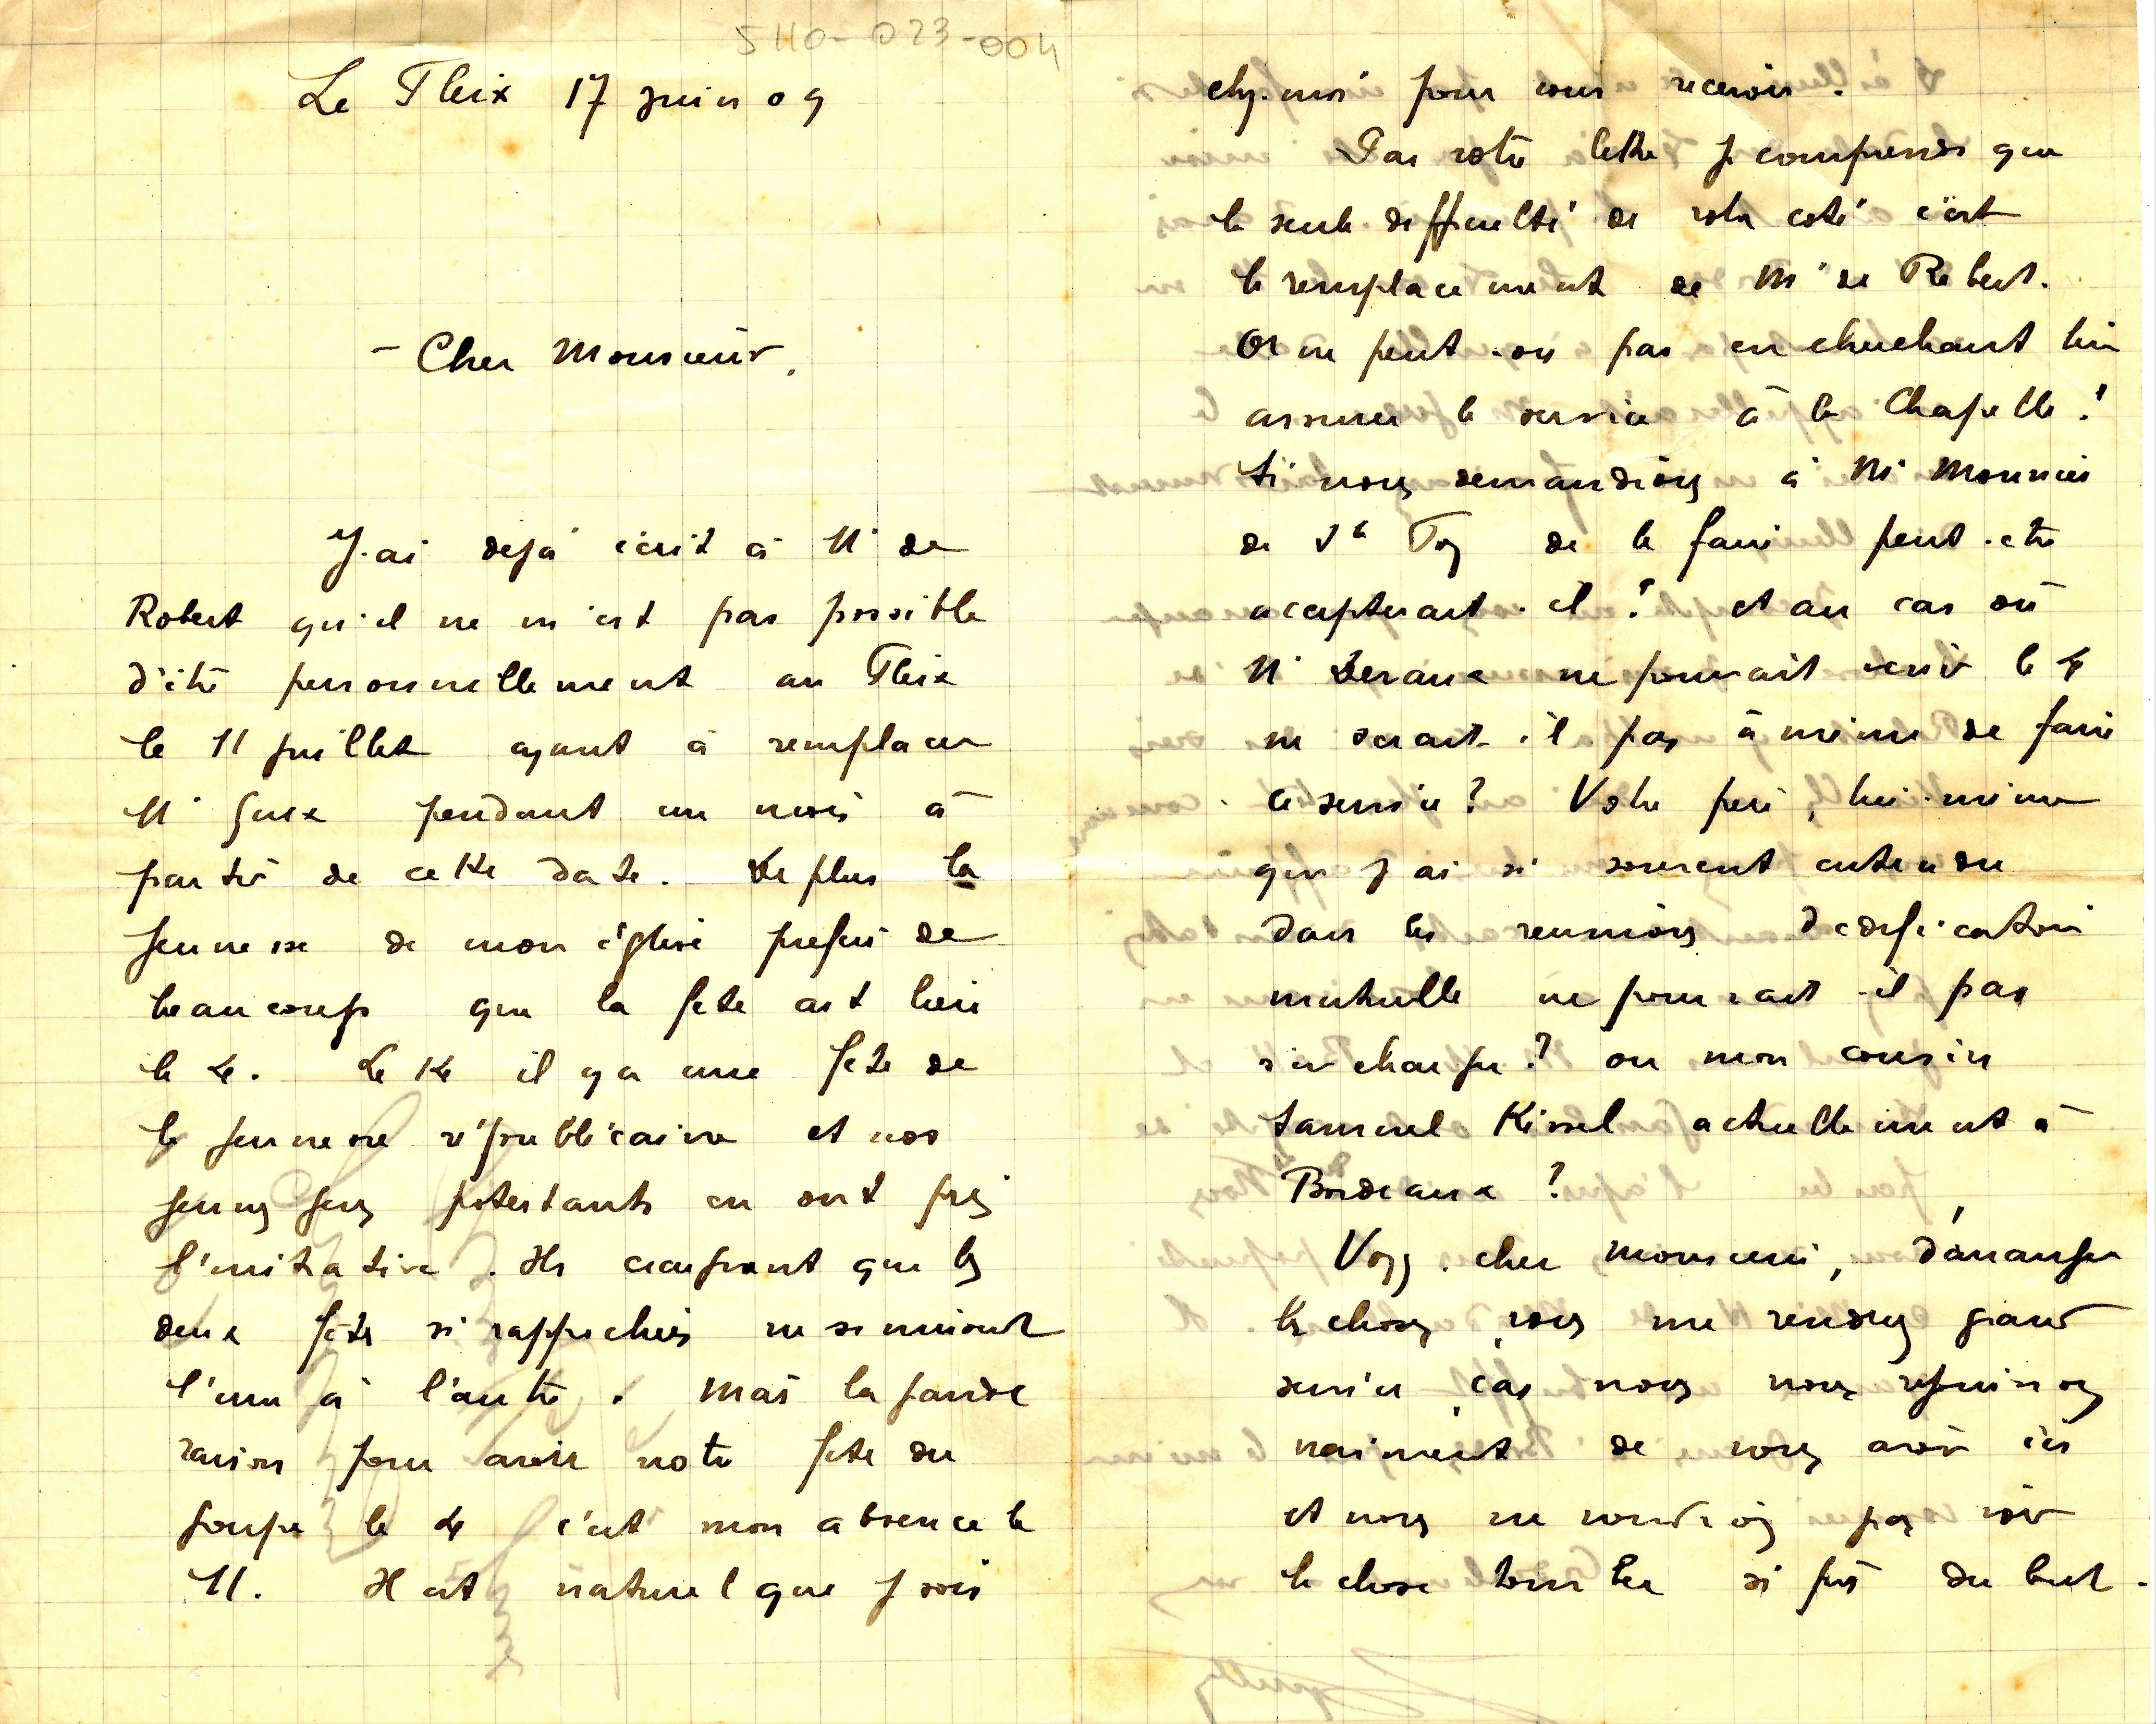 5110-023-004
Le Fleix 17 juin 09
- Cher Monsieur,
J'ai déjà écrit à Mr de
Robert qu'il ne m'est pas possible
d'être personnellement au Fleix
le 11 juillet ayant à remplacer
Mr Guex pendant un mois à
partir de cette date. De plus la
jeunesse de mon église préfère de
beaucoup que la fête ait lieu
le 4. Le 14 il y a une fête de
la jeunesse républicaine et nos
jeunes gens protestants en ont pris
l'initiative. Ils craignent que les
deux fêtes si rapprochées ne se nuisent
l'une à l'autre. Mais la grande
raison pour avoir notre fête du
groupe le 4 c'est mon absence le
11. Il est naturel que je sois
chez-moi pour vous recevoir.
Par votre lettre je comprends que
la seule difficulté de votre coté c'est
le remplacement de Mr de Robert.
Or ne peut-on pas en cherchant bien
assurer le service à la Chapelle?
Si nous demandions à Mr Mounier
de Ste Foy de le faire peut-être
accepterait-il? et au cas où
Mr Devaux ne pourrait venir le 4
ne serait-il pas à même de faire
ce service? Votre père, lui-même
que j'ai si souvent entendu
dans les réunions d'édification
mutuelle ne pourrait-il pas
s'en charger? ou mon cousin
Samuel Kissel actuellement à
Bordeaux?
Voyez, cher Monsieur, d'arranger
les choses, vous me rendrez grand
service, car nous nous réjouirons
vraiment de vous avoir ici
et nous ne voudrions pas voir
la chose tomber si près du but.